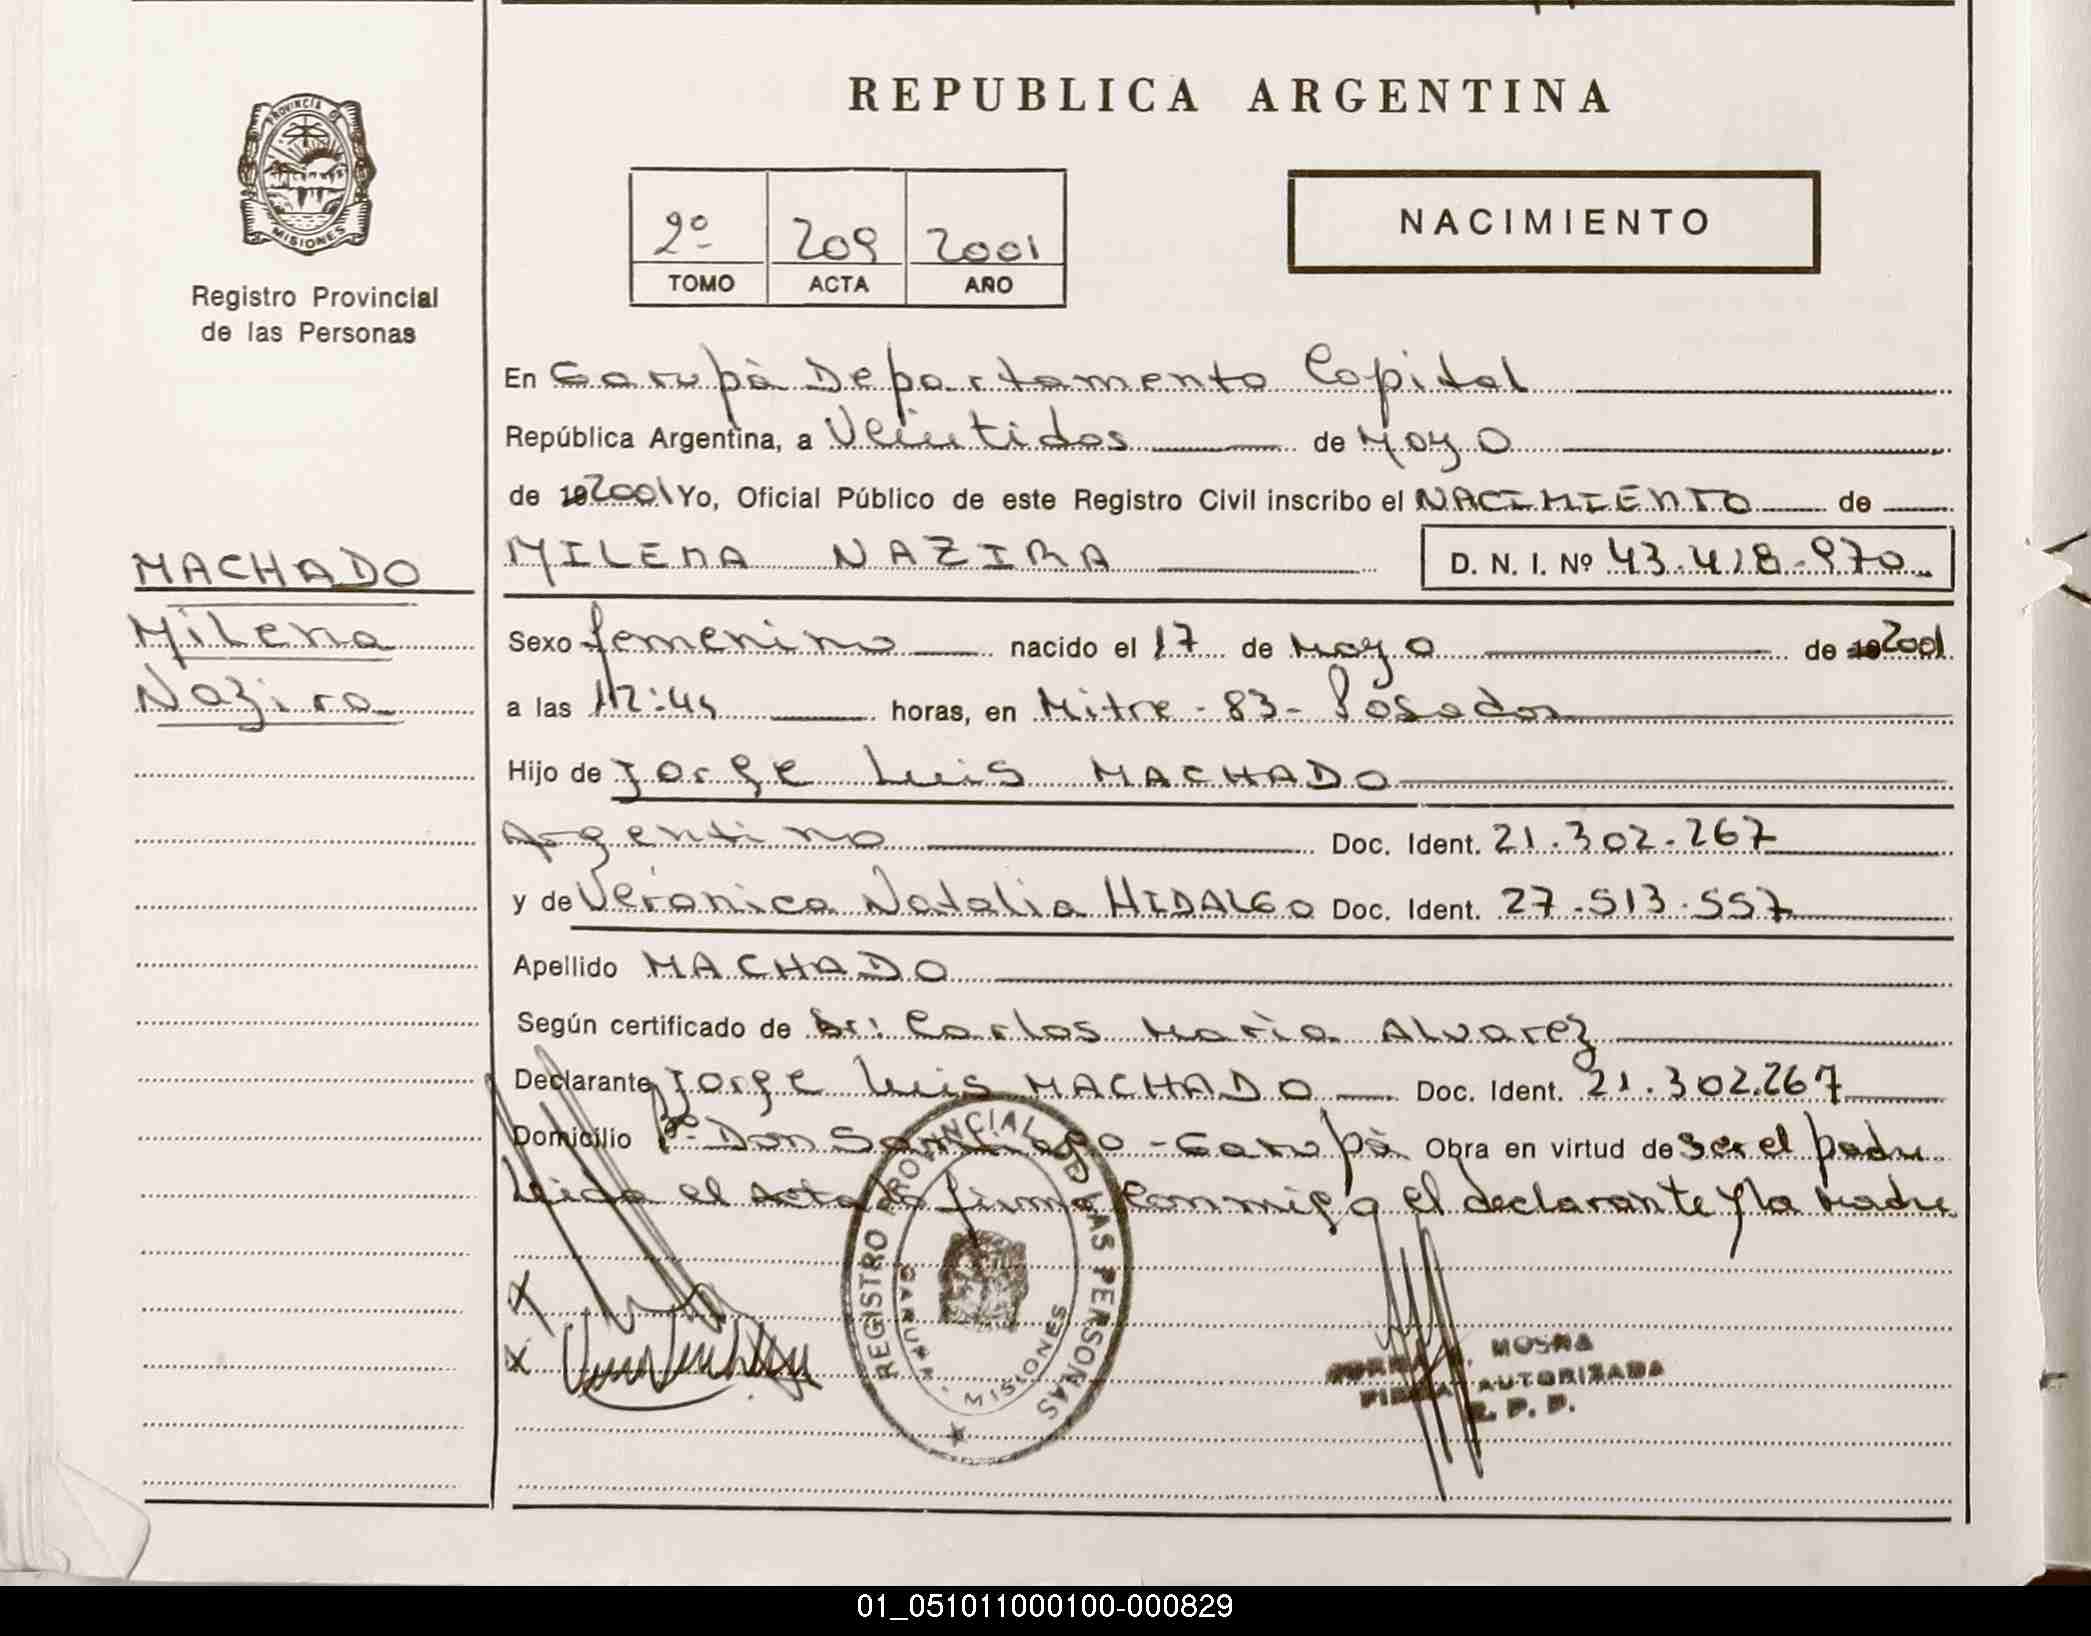 REPUBLICA ARGENTINA
PROVINCIA DE MISIONES
Registro Provincial
de las Personas
2º 209 2001
TOMO ACTA AÑO
NACIMIENTO
En Garupà Departamento Capital
República Argentina, a Veintidos de Mayo
de 192001 Yo, Oficial Público de este Registro Civil inscribo el NACIMIENTO de
MILENA NAZIRA D. N. I. Nº 43.418.970
MACHADO
Milena
Nazira
Sexo femenino nacido el 17 de Mayo de 192001
a las 12:45 horas, en Mitre - 83 - Posadas
Hijo de Jorge Luis MACHADO
Argentino Doc. Ident. 21.302.267
y de Verónica Natalia HIDALGO Doc. Ident. 27.513.557
Apellido MACHADO
Según certificado de Dr: Carlos Marìa Alvarez
Declarante Jorge Luis MACHADO Doc. Ident. 21.302.267
Domicilio Bº Don Santiago - Garupà Obra en virtud de ser el padre
Leida el acta la firma conmigo el declarante y la Madre
X
X
REGISTRO PROVINCIAL DE LAS PERSONAS
GARUPA - MISIONES
MOSNA
FIRMA AUTORIZADA
R. P. P.
01_051011000100-000829